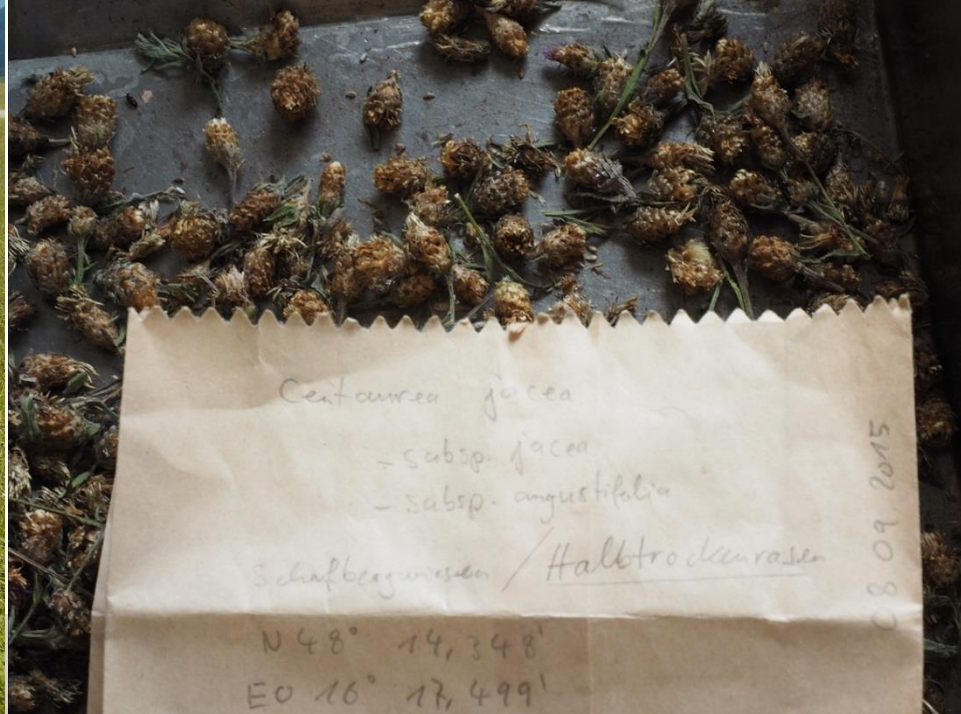 Centaurea jacea
- subsp. jacea
- subsp. angustifolia
Schafbergwiesen / Halbtrockenrasen
N 48° 14,348'
EO 16° 17,499'
08 09 2015